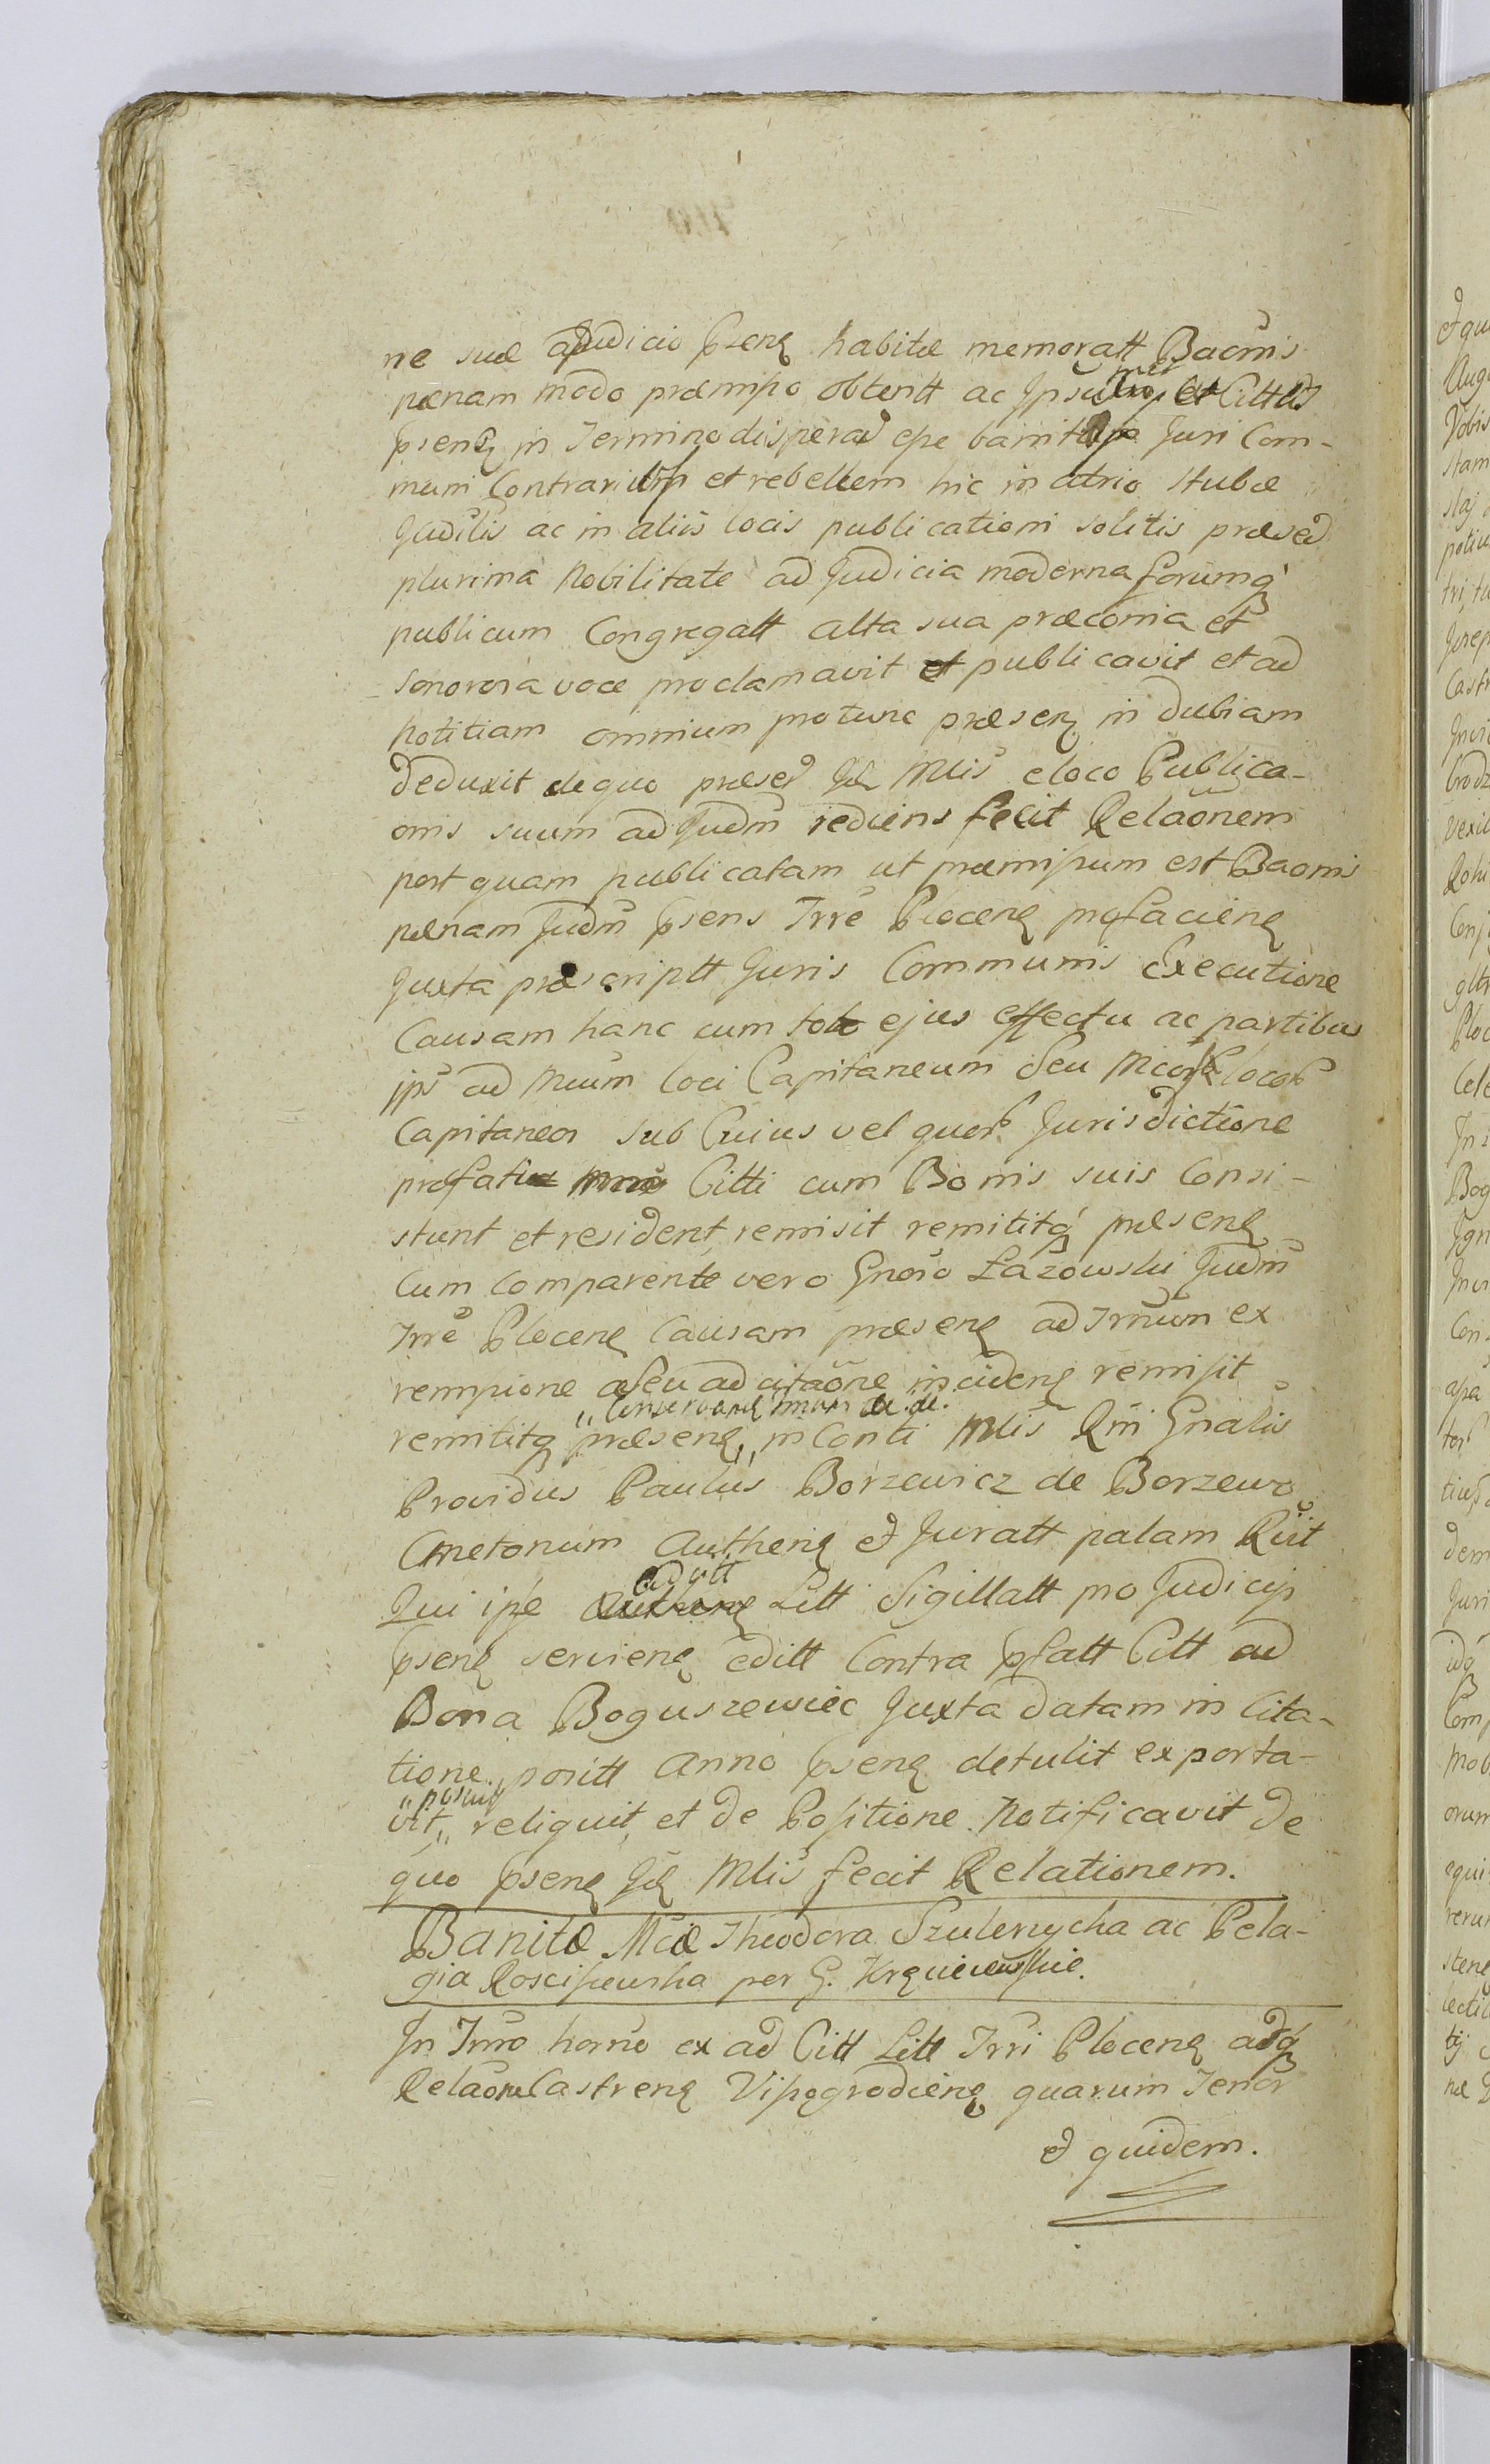 ne suæ aJudicio psenȩ habitæ memoratt Baõnis
pænam modo præmisso obtentt ac Ipsũ et Cittũ
psenȩ in Termino disperad esse bannit Juri Com-
muni Contrarium et rebellem hic in atrio stubæ
Judilis ac in aliis locis publicationi solitis præsed
plurima Nobilitate ad Judicia moderna forumq
publicum Congregatt alta sua præconia et
sonorosa voce proclamavit et publicavit et ad
Notitiam omnium protunc præsenȩ in dubiam
deduxit de quo præsed Mlis eloco Publica-
onis suum ad Judm rediens fecit Relaõnem
post quam publicatam ut præmissum est Baonis
pænam Judm psens Trrê Plocenȩ profacienȩ
Juxta præscriptt Juris Communis Executione
Causam hanc cum toto ejus effectu ac partibus
jps ad Mcum loci Capitaneum seu Mcos locor
Capitaneos sub Cuius vel quor Jurisdictione
præfati Citti cum Bonis suis Consi-
stunt et resident remisit remititq præsenȩ
Cum comparente vero Gnoso Łazowski Judm
Trrê Plocenȩ Causam præsenȩ ad Trnum ex
remissione aseu ad citaõne incidenȩ remisit
„Conservanȩ
remititq præsenȩ„ in Conti Mlis Rni Gnalis
Providus Paulus Borzewicz de Borzewo
Cmetonum Authenȩ et Juratt palam Rũt
Qui ipse Litt Sigillatt pro Judicijs
psenȩ servienȩ editt Contra pfatt Citt ad
Bona Boguszewiec Juxta datam in Cita-
tione positt Anno psenȩ detulit exporta-
„posuit
vit„ reliquit et de Positione Notificavit de
quo psenȩ Mlis fecit Relationem.
Banitæ Mcæ Theodora Szulenycha ac Pela-
gia Roscisewska per G.
In Trno horno ex ad Citt Litt Trri Plocenȩ adq
Relaõne Castrenȩ Vissogrodienȩ quarum Tenor
et quidem.